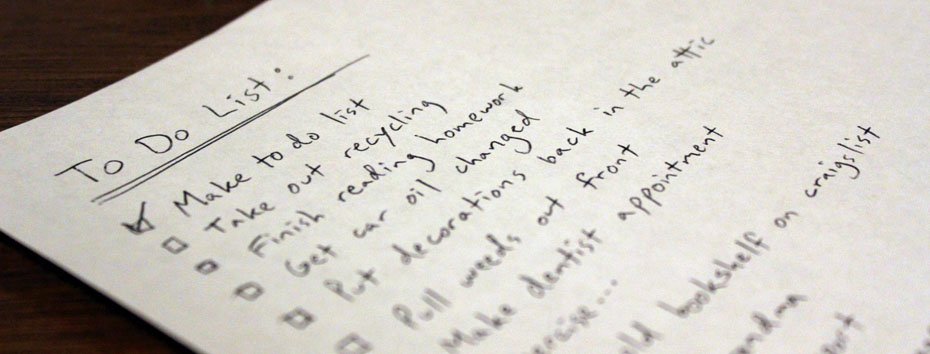 To Do List:
Make to do list
Take out recycling
Finish reading homework
Get car oil changed
Put decorations back in the attic
Pull weeds out front
Make dentist appointment
old bookshelf on craigslist